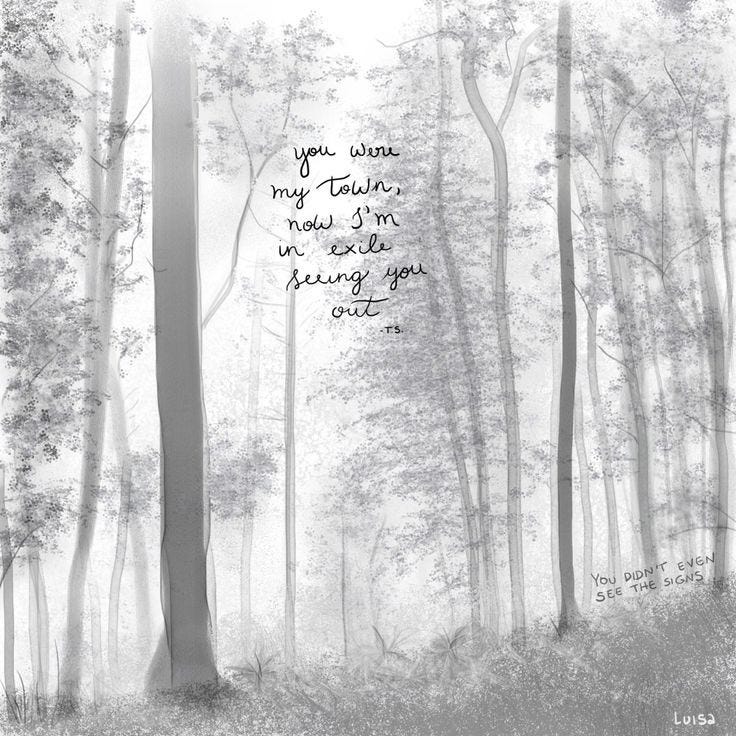 you were
my town,
now I'm
in exile
seeing you
out
-T.S.
YOU DIDN'T EVEN
SEE THE SIGNS
Luisa